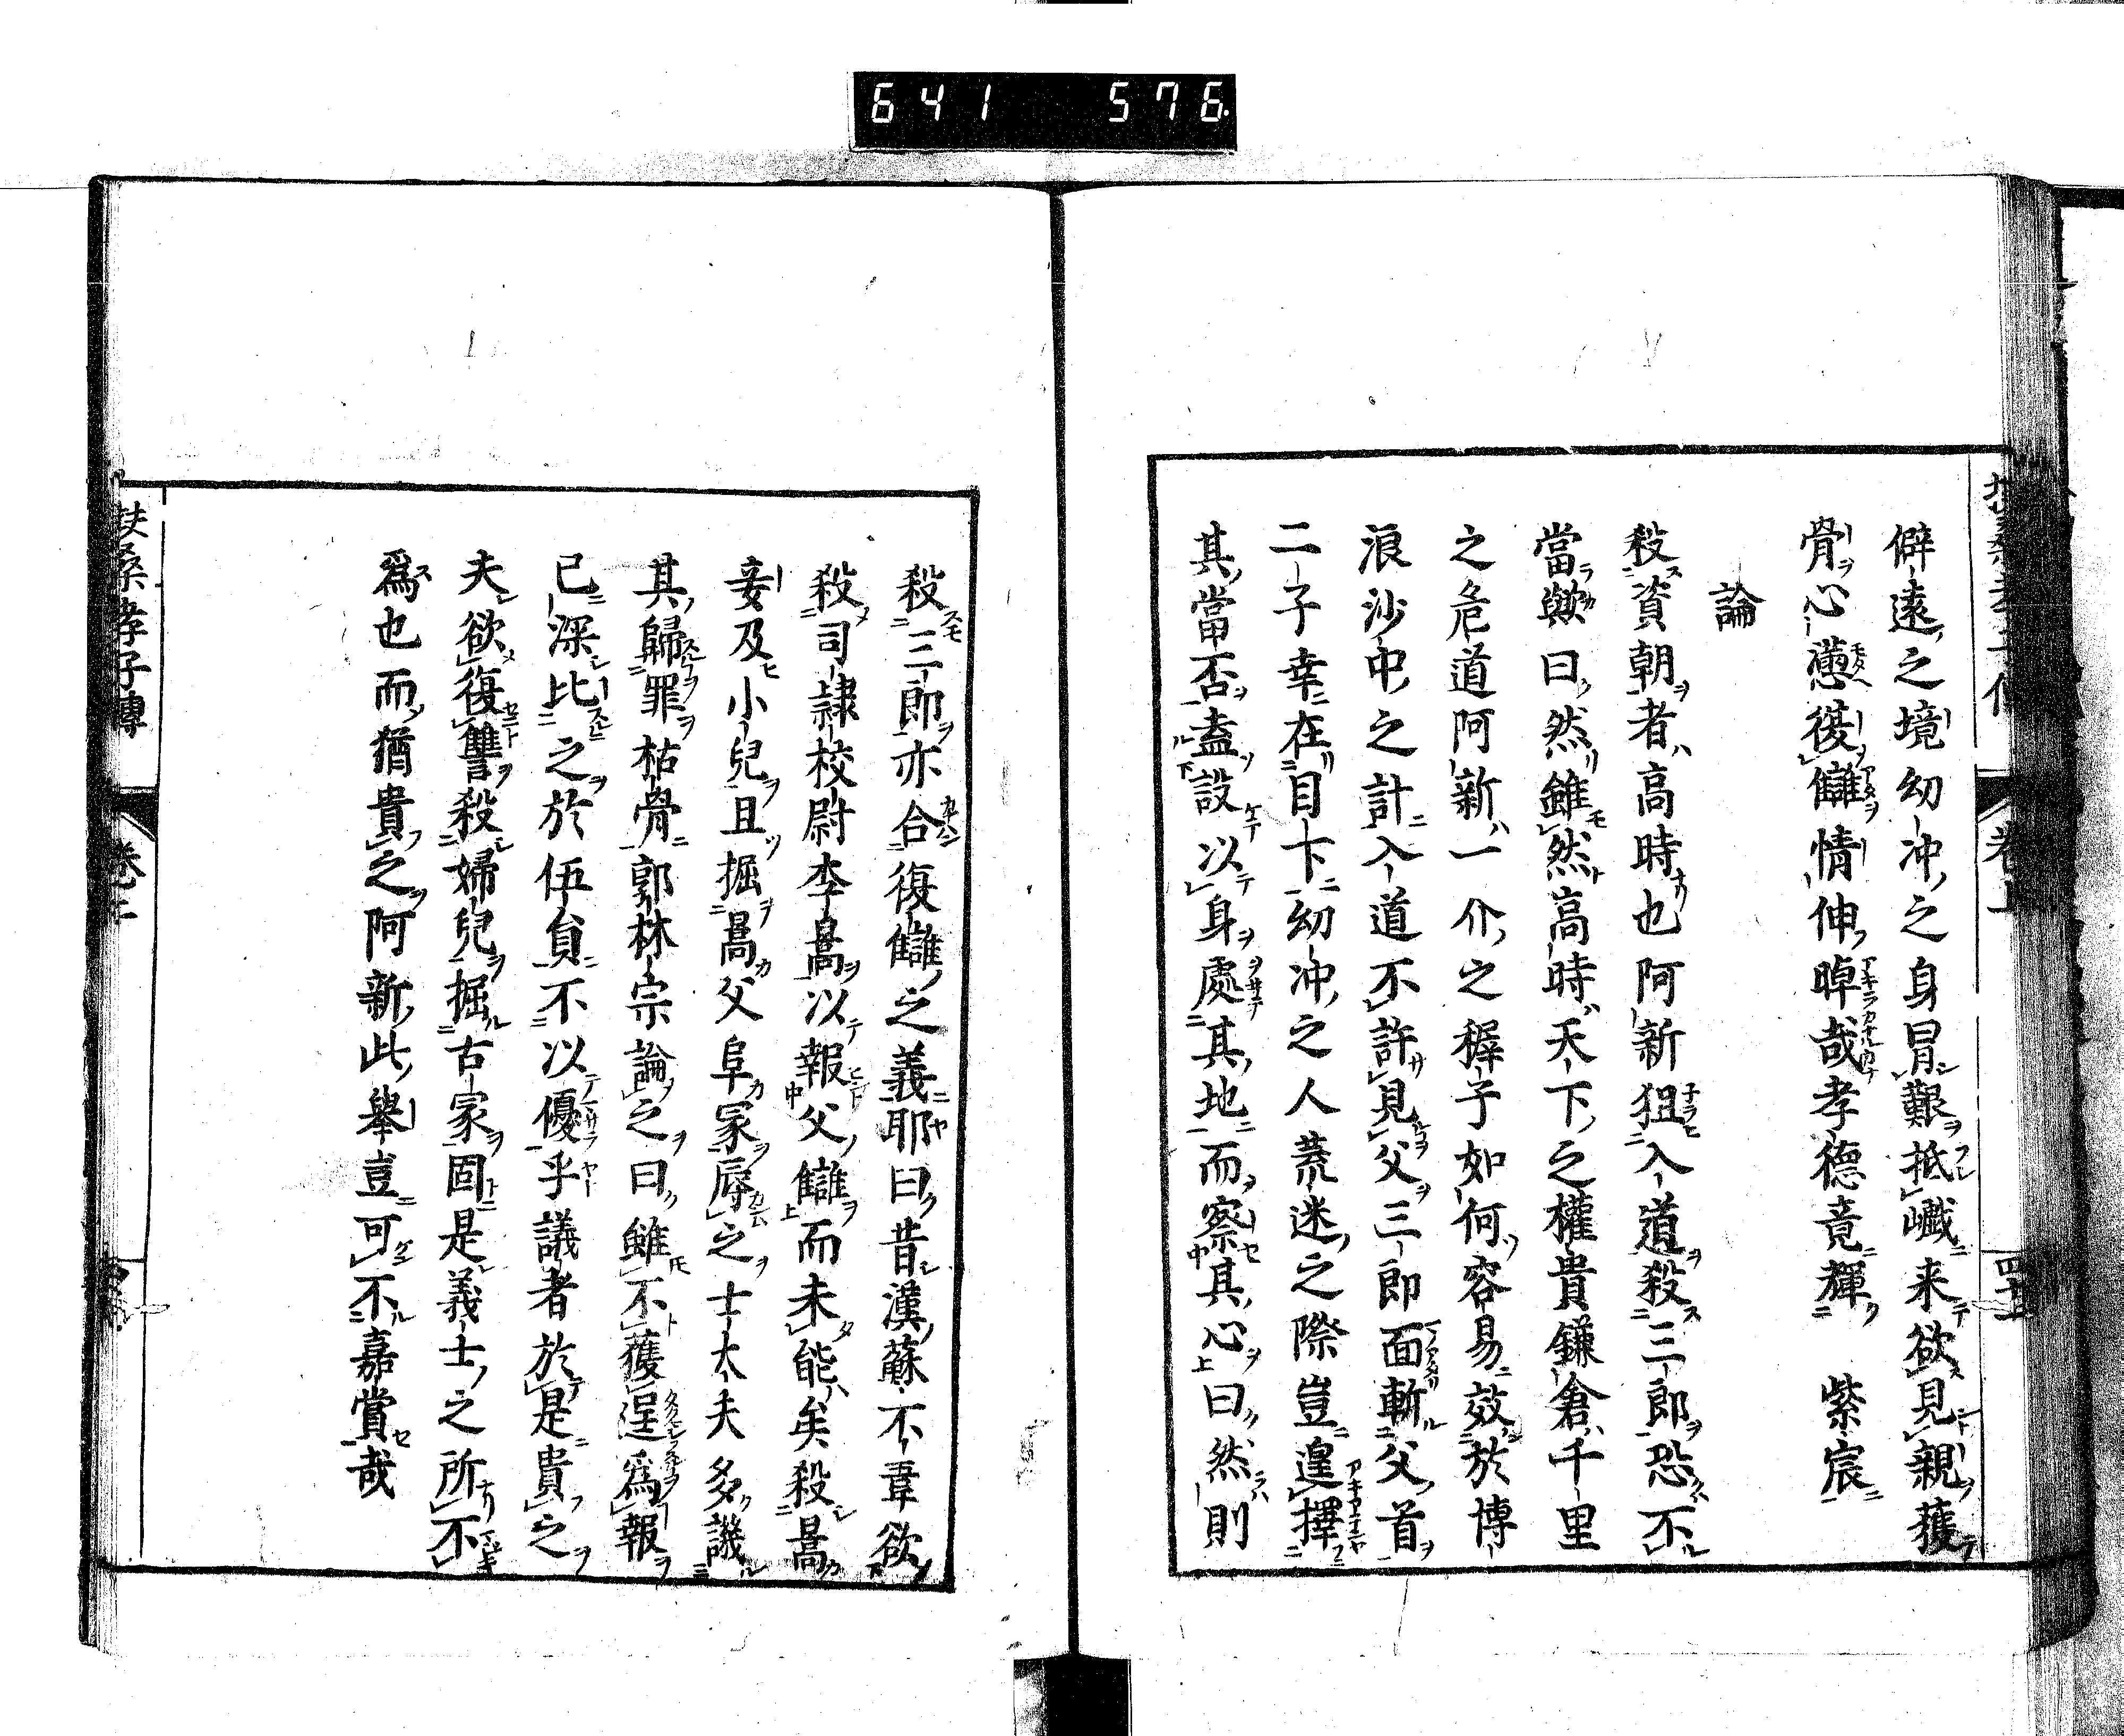 641 576
僻遠之境幼冲之身冒艱抵巇来欲見親獲
骨心懣復讎情伸晫哉孝德竟輝 紫宸
論
殺資朝者高時也阿新狙入道殺三郎恐不
當歟曰然雖然高時天下之權貴鎌倉千里
之危道阿新一介之穉子如何容易效於博
浪沙中之計入道不許見父三郎面斬父首
二子幸在目下幼冲之人荒迷之際豈遑擇
其當否盍設以身處其地而察其心曰然則
殺三郎亦合復讎之義耶曰昔漢蘇不韋欲
殺司隷校尉李暠以報父讎而未能矣殺暠
妾及小兒且掘暠父阜冢辱之士大夫多譏
其歸罪枯骨郭林宗論之曰雖不獲逞為報
已深比之於伍員不以優乎議者於是貴之
夫欲復讐殺婦兒掘古冢固是義士之所不
爲也而猶貴之阿新此舉豈可不嘉賞哉
扶桑孝子傳 卷上